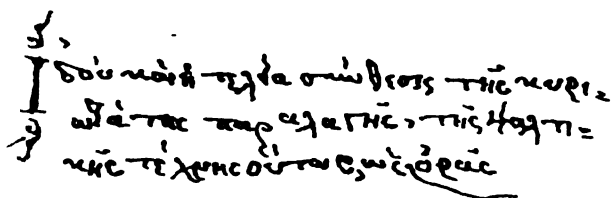 Ἰδοὺ καὶ ἡ τελεία σύνθεσις τῆς κυρι=
ωτάτης παραλλαγῆς, τῆς ψαλτι=
κῆς τέχνης οὕτως, ὡς ὁρᾷς